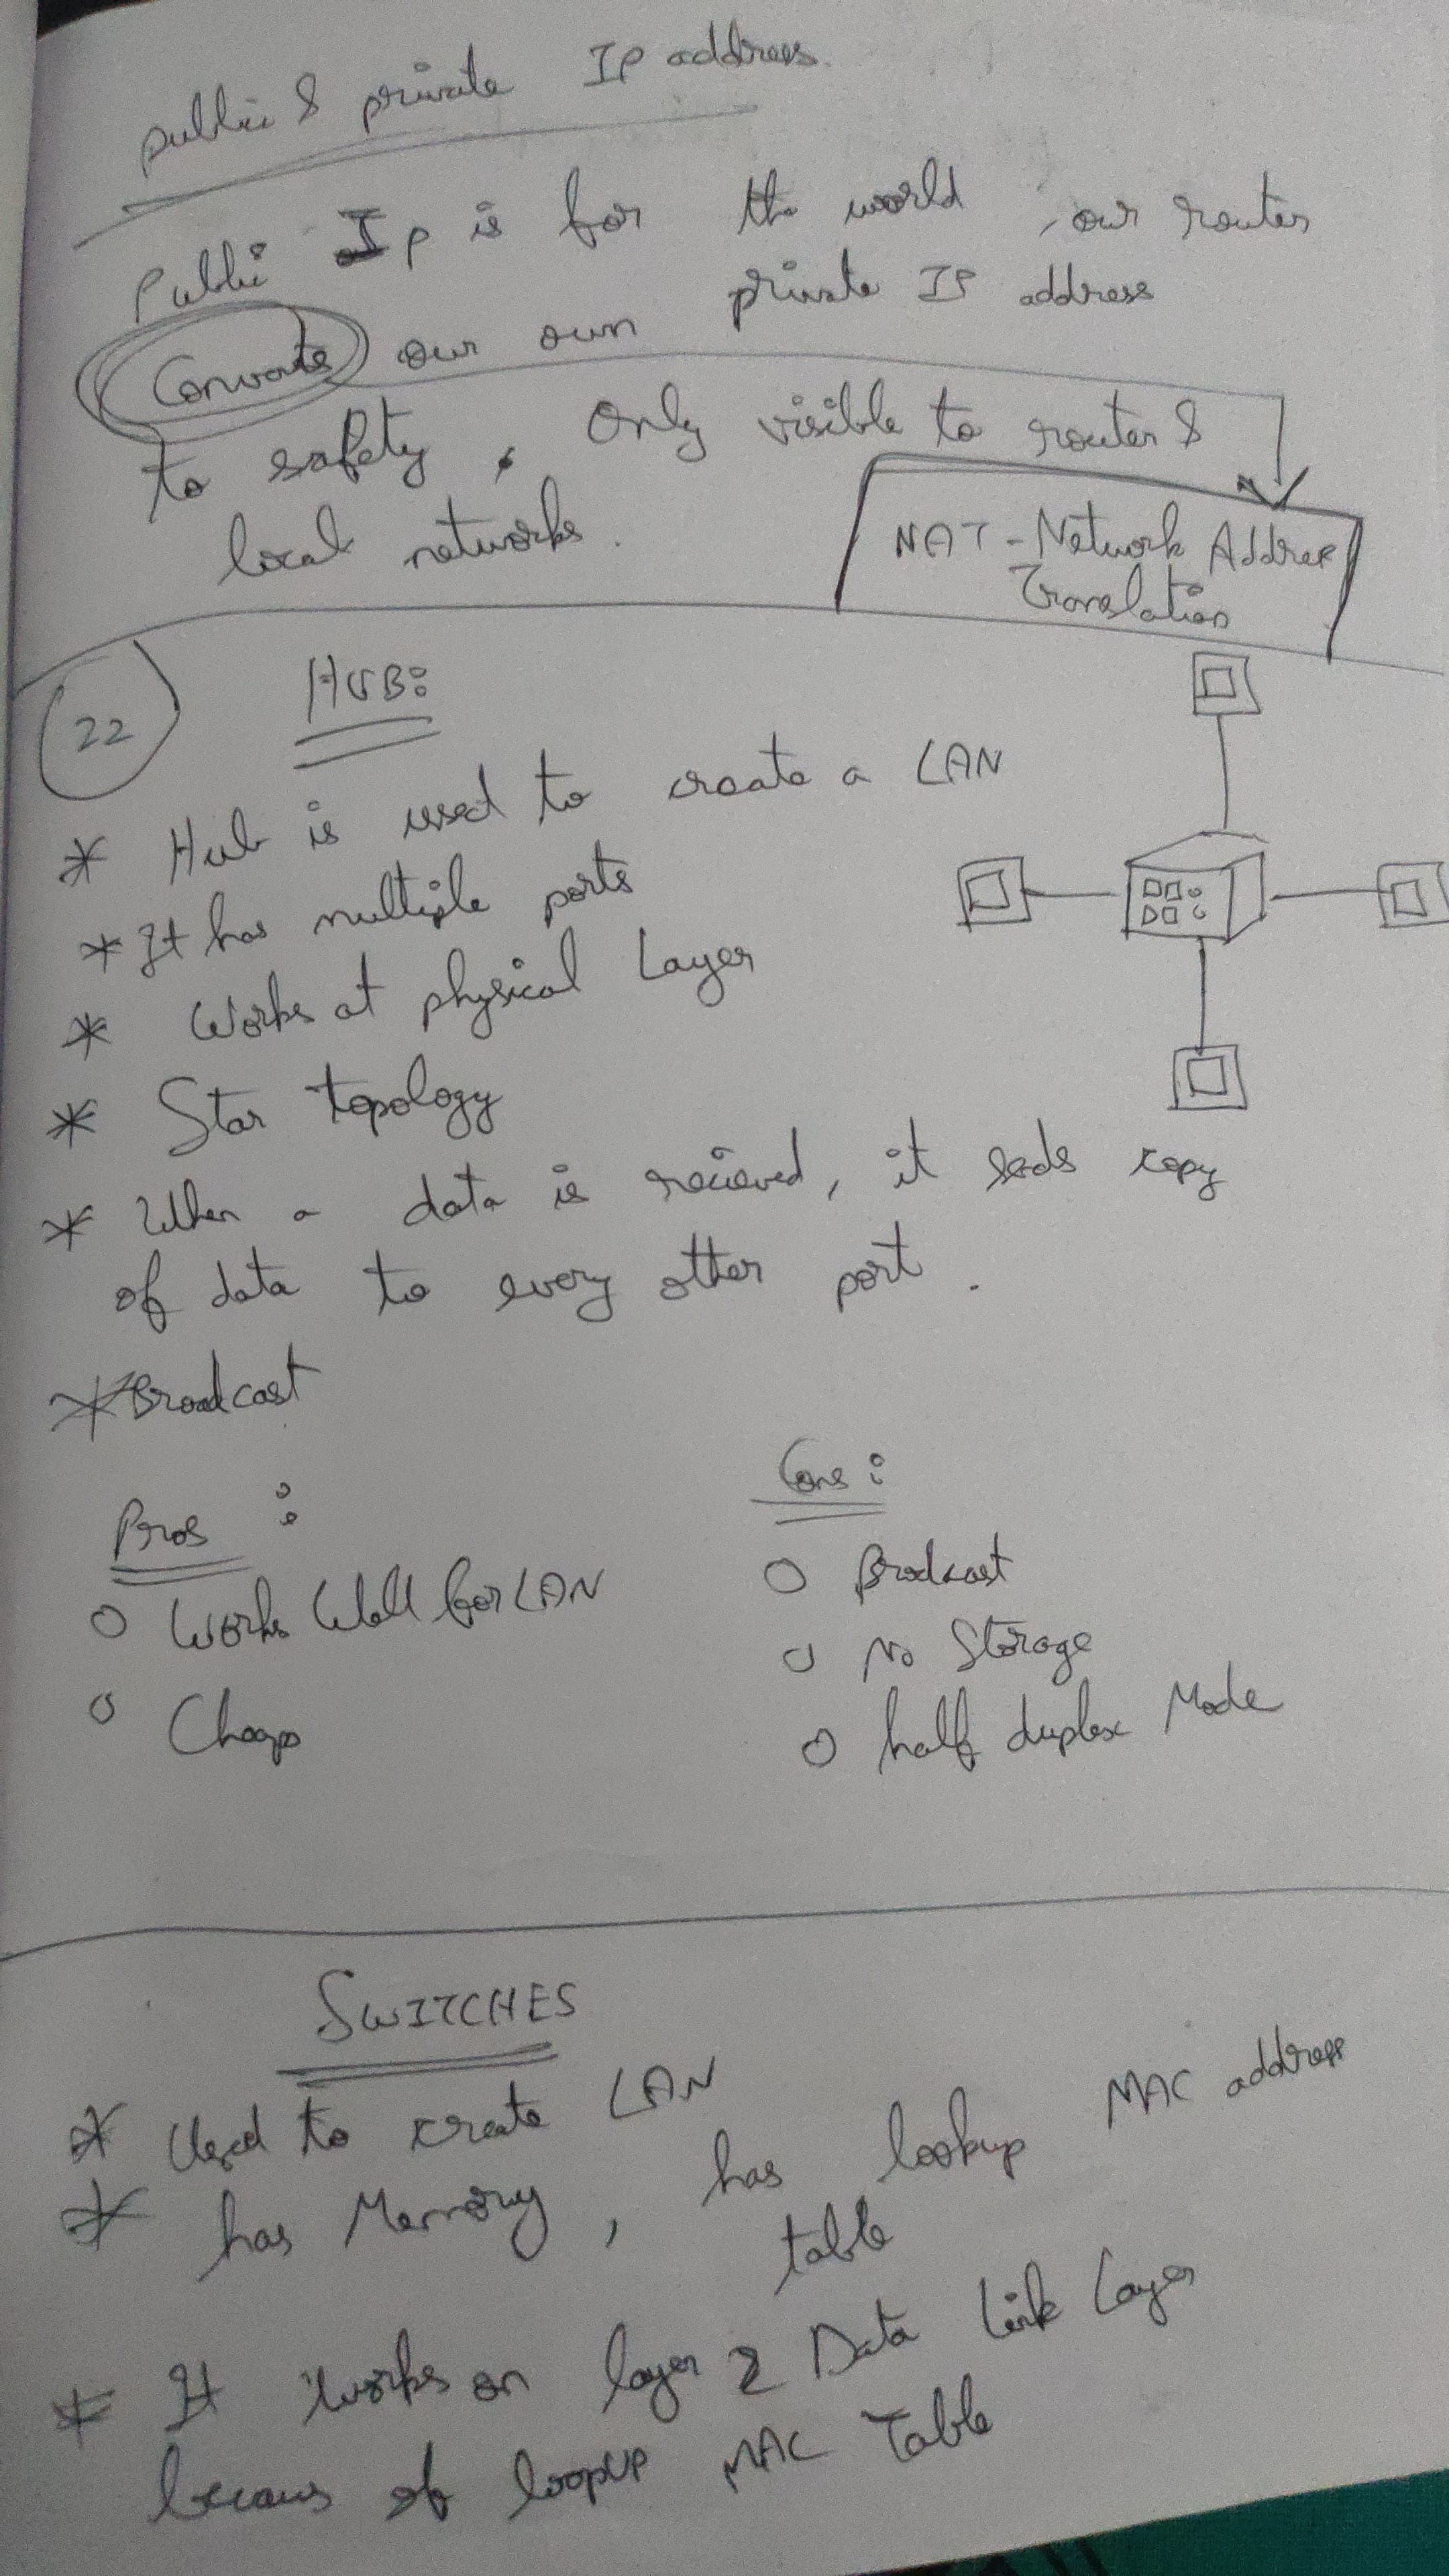 public & private IP address.
Public Ip is for the world, our router
Converts our own private IP address
to safety, Only visible to router &
local networks.
NAT - Network Address
Translation
22
HUB:
* Hub is used to create a LAN
* It has multiple ports
* Works at physical Layer
* Star topology
* When a data is recieved, it sends copy
of data to every other port.
* Broadcast
Pros :
o Works Well for LAN
o Cheap
Cons :
o Brodcast
o No Storage
o half duplex Mode
SWITCHES
* Used to create LAN
* has Memory, has lookup MAC address
table
* It works on layer 2 Data Link Layer
becaus of loopup MAC Table